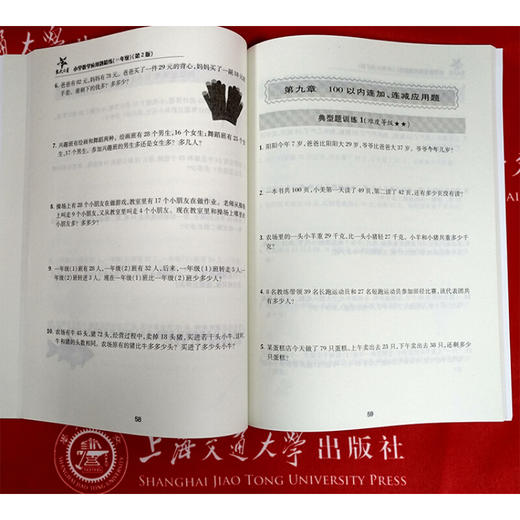 小学数学应用题精练(一年级)(第2版)
6. 爸爸有82元,妈妈有78元。爸爸买了一件29元的背心,妈妈买了一副18元的
手套。谁剩的钱多?多多少?
7. 兴趣班有绘画和舞蹈两种。绘画班有28个男生,16个女生;舞蹈班有25个女
生,17个男生。参加兴趣班的男生多还是女生多?多几人?
8. 操场上有28个小朋友在做游戏,教室里有17个小朋友在做作业。老师从操场
上叫走9个小朋友,又从教室里叫走4个小朋友。现在教室里和操场上哪里的
小朋友多?多多少?
9. 一年级(1)班有28人,一年级(2)班有32人,后来,一年级(1)班转走3人,一
年级(2)班转进3人。现在一年级(1)班比一年级(2)班少多少人?
10. 农场有牛45头,猪72头,经营过程中,卖掉18头猪,买进若干头小牛,这时,
牛和猪的头数相同。农场原有的猪比牛多多少头?买进了多少头小牛?
58
第九章 100以内连加、连减应用题
典型题训练1(难度等级★★)
1. 阳阳今年7岁,爸爸比阳阳大29岁,爷爷比爸爸大37岁,爷爷今年几岁?
2. 一本书共100页,小美第一天读了49页,第二读了42页,还有多少页没有读?
3. 农场里的一头小羊重29千克,比一头小猪轻27千克。小羊和小猪共重多少千
克?
4. 8名教练带领39名长跑运动员和27名短跑运动员参加田径比赛,该代表团共
有多少人?
5. 某蛋糕店今天做了79只蛋糕,上午卖出去23只,下午卖出去38只,还剩多少
只蛋糕?
59
上海交通大学出版社
SHANGHAI JIAO TONG UNIVERSITY PRESS